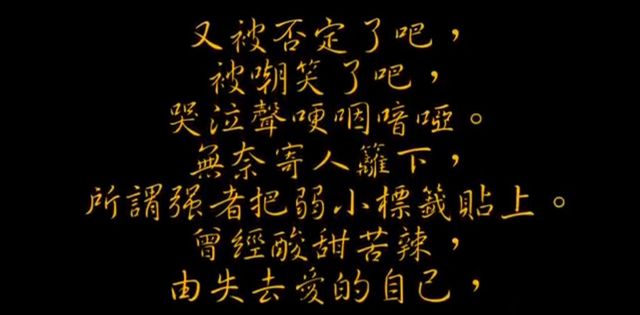 又被否定了吧，
被嘲笑了吧，
哭泣聲哽咽喑啞。
無奈寄人籬下，
所謂强者把弱小標籤貼上。
曾經酸甜苦辣，
由失去愛的自己，